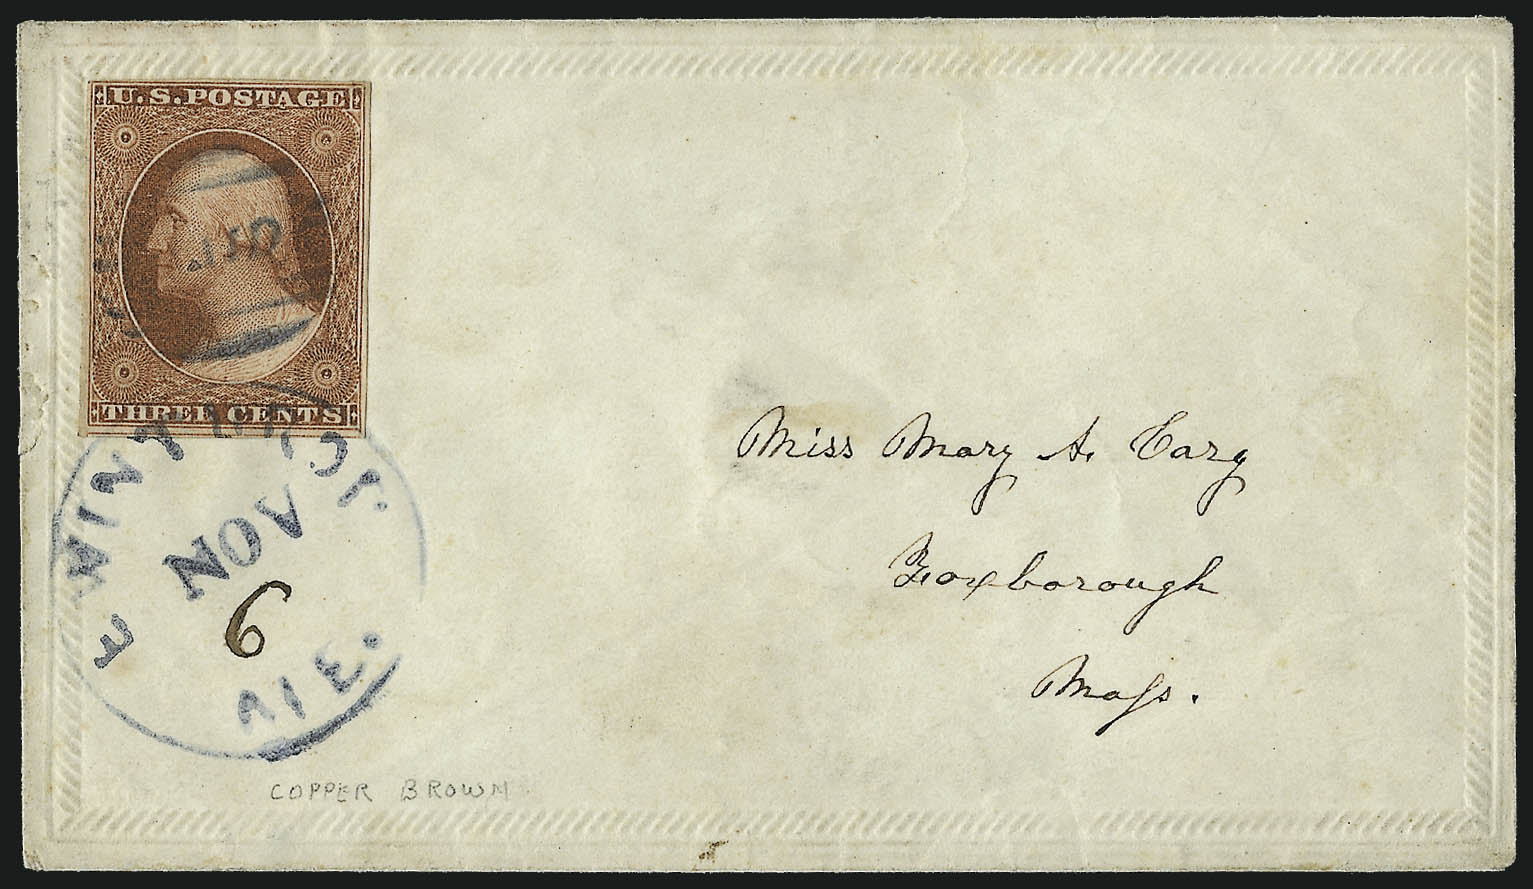 U.S.POSTAGE
THREE CENTS
E. WINTHROP.
NOV
6
ME.
Miss Mary A. Cary
Foxborough
Mass.
COPPER BROWN